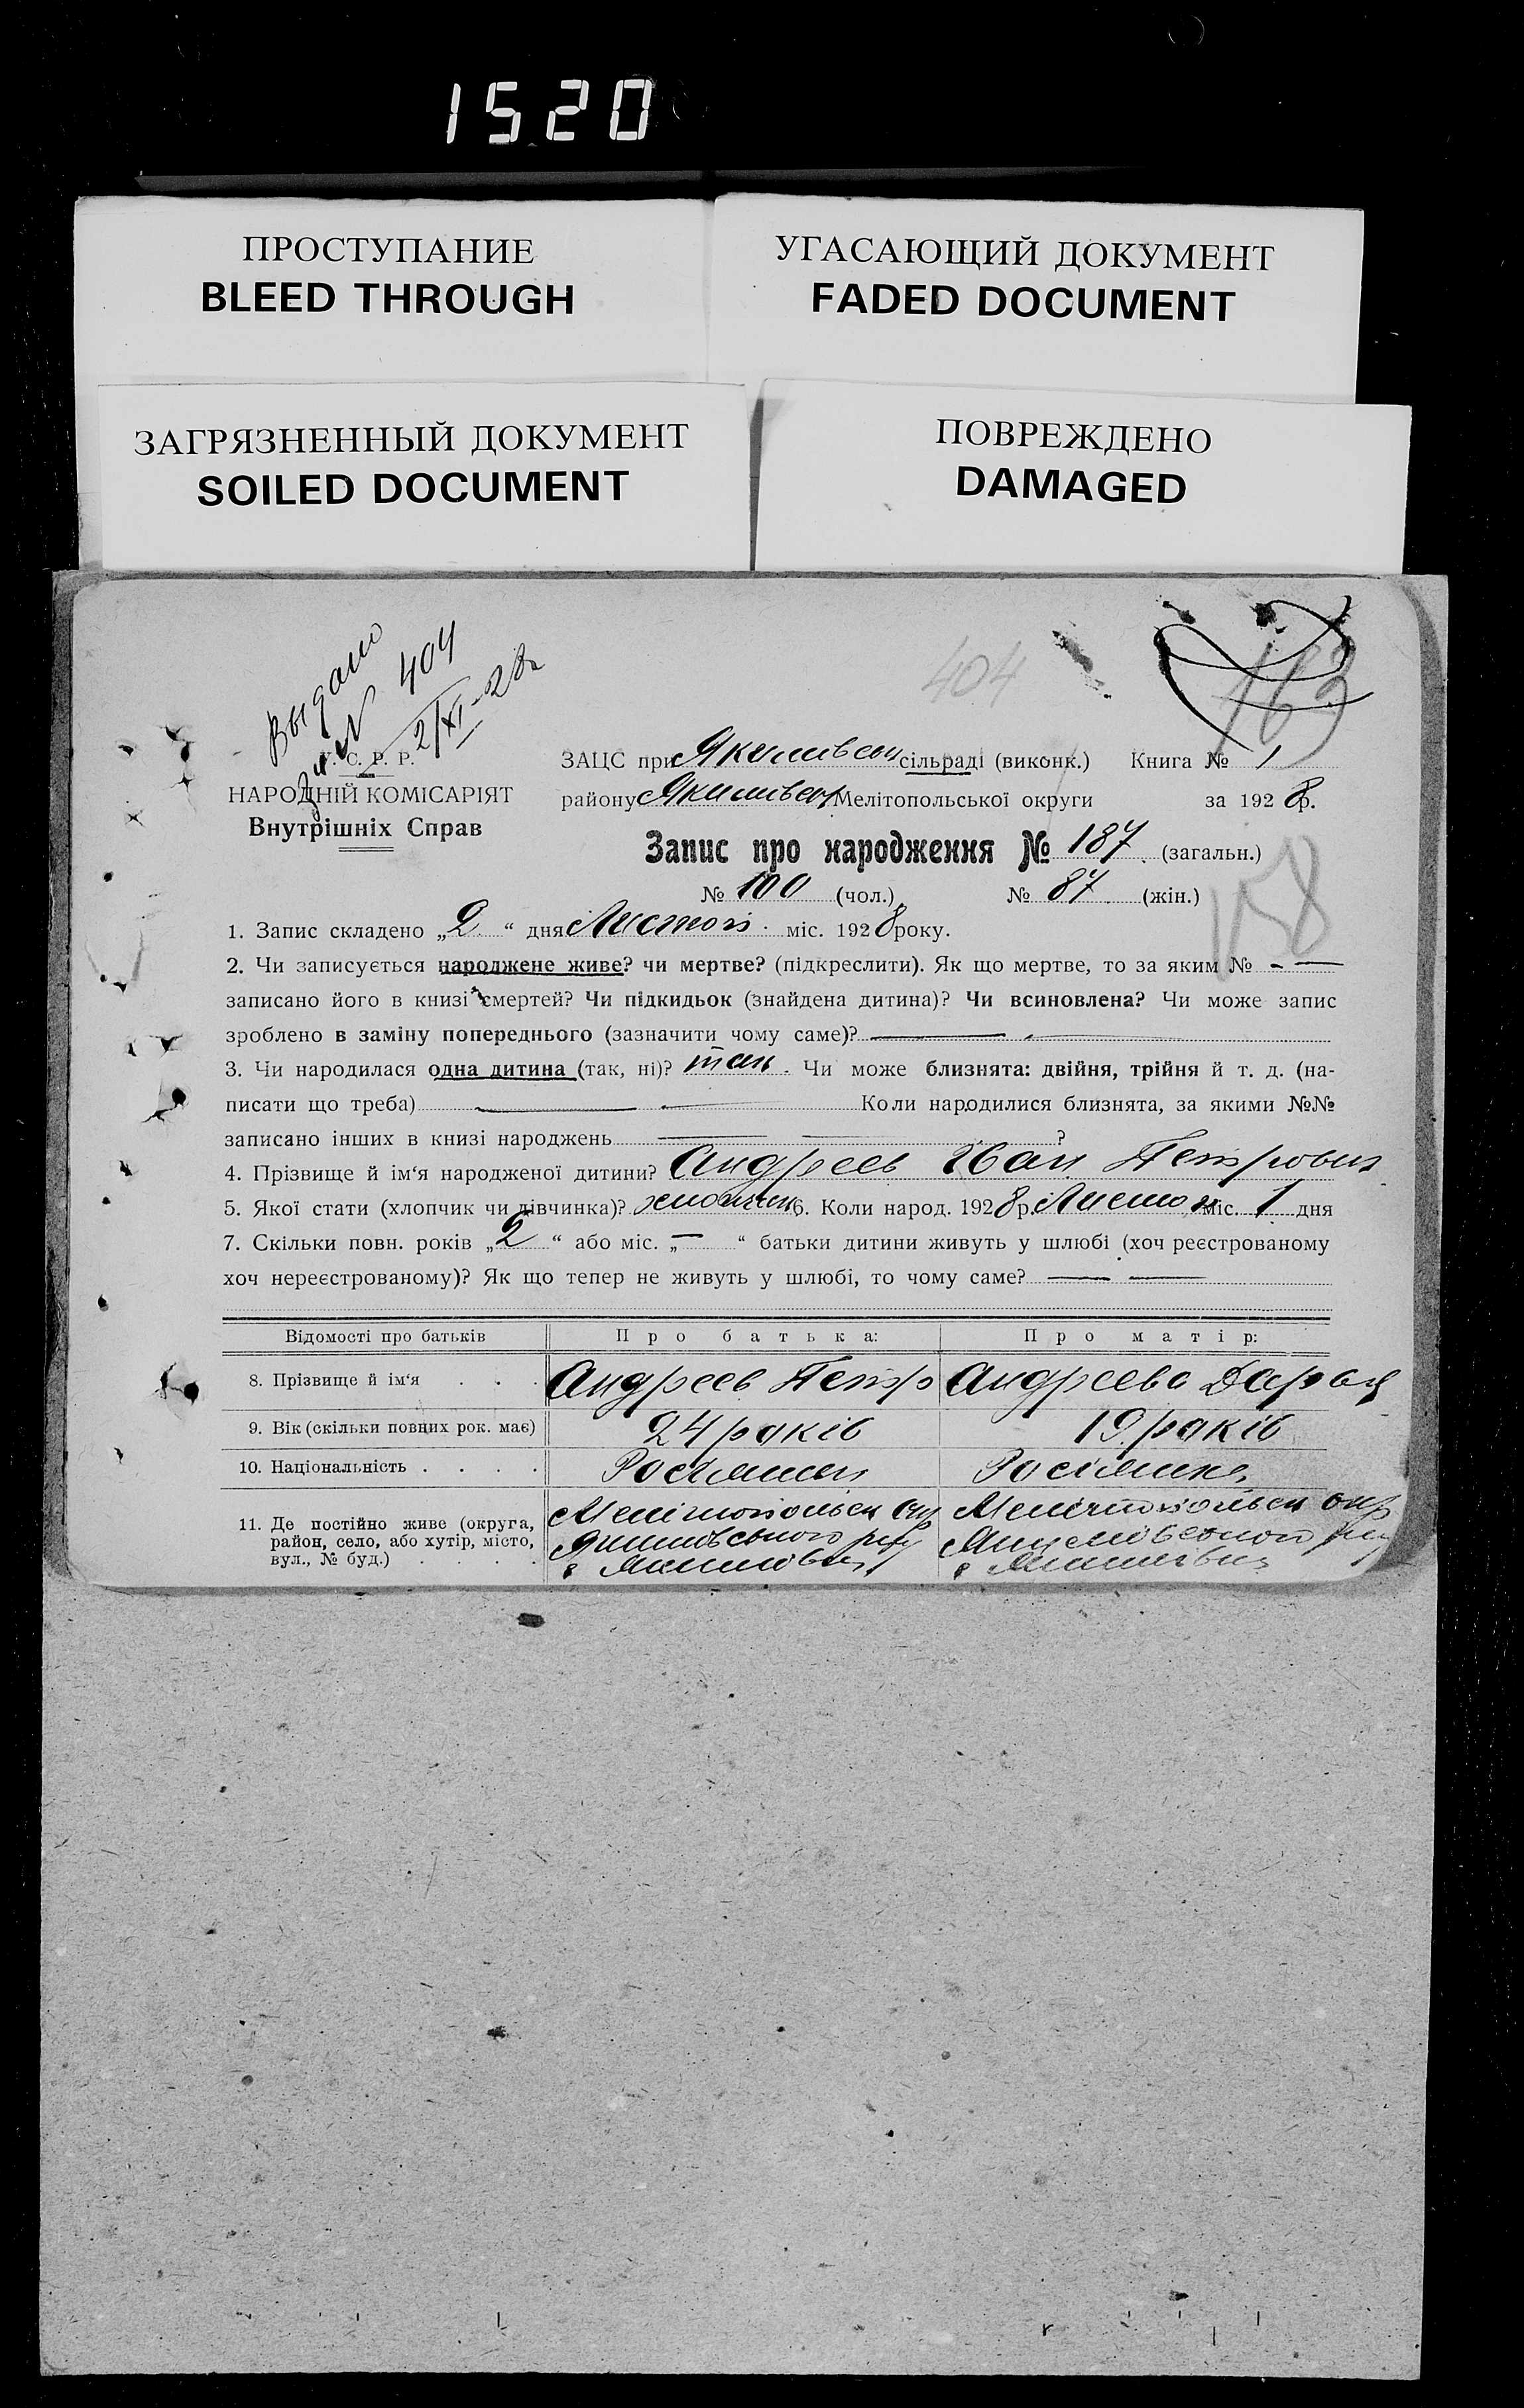 1520
ПРОСТУПАНИЕ
BLEED THROUGH
УГАСАЮЩИЙ ДОКУМЕНТ
FADED DOCUMENT
ЗАГРЯЗНЕННЫЙ ДОКУМЕНТ
SOILED DOCUMENT
ПОВРЕЖДЕНО
DAMAGED
Выдано
за № 404
2/XI-28
404
163
158
У. С. Р. Р.
НАРОДНІЙ КОМІСАРІЯТ
Внутрішніх Справ
ЗАЦС при Якимівськ сільраді (виконк.) Книга № 1
району Якимівськ Мелітопольської округи за 1928 р.
Запис про народження № 187 (загальн.)
№ 100 (чол.) № 87 (жін.)
1. Запис складено „2“ дня Листоп. міс. 1928 року.
2. Чи записується народжене живе? чи мертве? (підкреслити). Як що мертве, то за яким № —
записано його в книзі смертей? Чи підкидьок (знайдена дитина)? Чи всиновлена? Чи може запис
зроблено в заміну попереднього (зазначити чому саме)? —
3. Чи народилася одна дитина (так, ні)? так. Чи може близнята: двійня, трійня й т. д. (на-
писати що треба) — Коли народилися близнята, за якими №№
записано інших в книзі народжень — ?
4. Прізвище й ім‘я народженої дитини? Андреев Иван Петрович
5. Якої стати (хлопчик чи дівчинка)? хлопчик 6. Коли народ. 1928 р. Листоп міс. 1 дня
7. Скільки повн. років „2“ або міс. „—“ батьки дитини живуть у шлюбі (хоч реєстрованому
хоч нереєстрованому)? Як що тепер не живуть у шлюбі, то чому саме? —
Відомості про батьків Про батька: Про матір:
8. Прізвище й ім‘я . . . Андреев Петр Андреева Дарья
9. Вік (скільки повних рок. має) 24 років 19 років
10. Національність . . . . Росіянин Росіянка
11. Де постійно живе (округа,
район, село, або хутір, місто,
вул., № буд.) . . . .
Мелітопольськ окр
Якимівського рну
с Якимівці
Мелітопольськ окр
Якимівського рну
с Якимівці